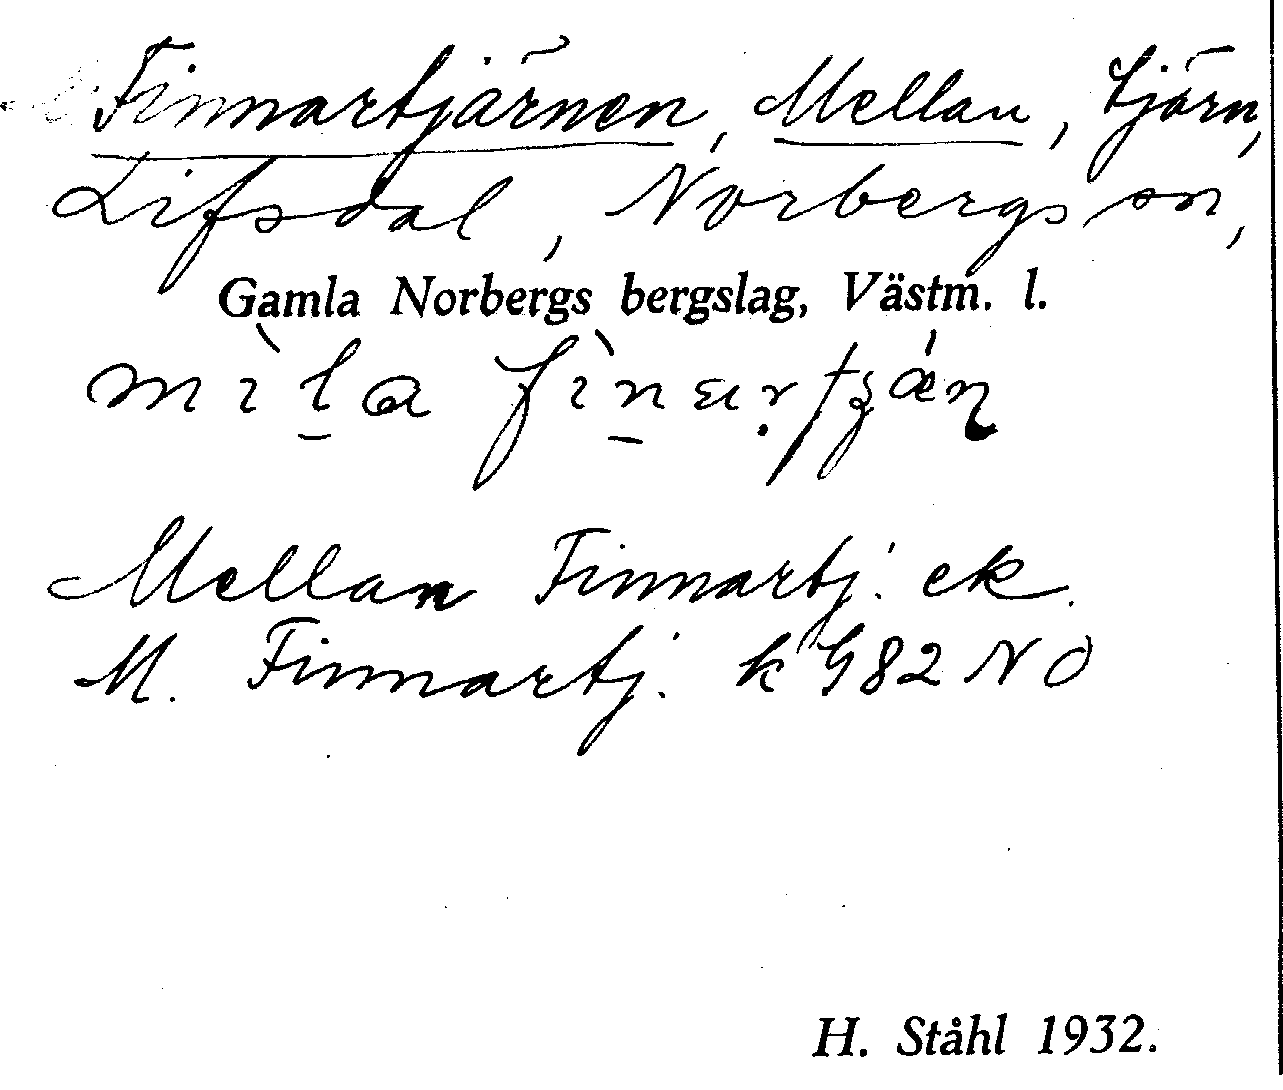 Finnartjärnen, Mellan, tjärn,
Lifsdal, Norbergs sn,
Gamla Norbergs bergslag, Västm. l.
Mellan Finnartj. ek.
M. Finnartj. k G82 NO
H. Ståhl 1932.